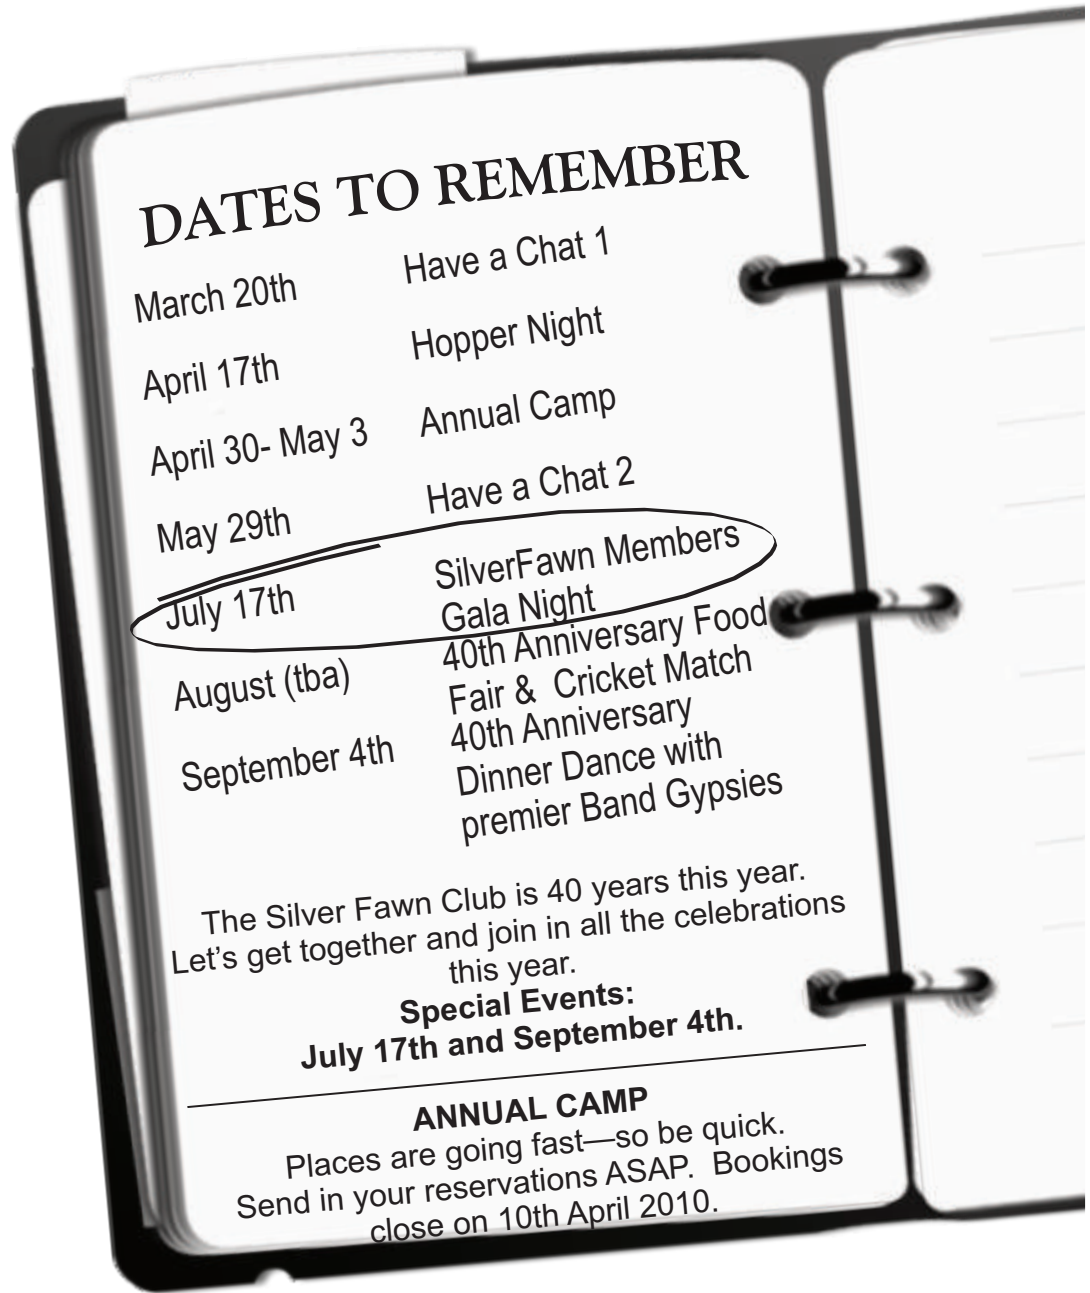 DATES TO REMEMBER
March 20th Have a Chat 1
April 17th Hopper Night
April 30- May 3 Annual Camp
May 29th Have a Chat 2
July 17th SilverFawn Members
Gala Night
August (tba) 40th Anniversary Food
Fair & Cricket Match
September 4th 40th Anniversary
Dinner Dance with
premier Band Gypsies
The Silver Fawn Club is 40 years this year.
Let’s get together and join in all the celebrations
this year.
Special Events:
July 17th and September 4th.
ANNUAL CAMP
Places are going fast—so be quick.
Send in your reservations ASAP. Bookings
close on 10th April 2010.